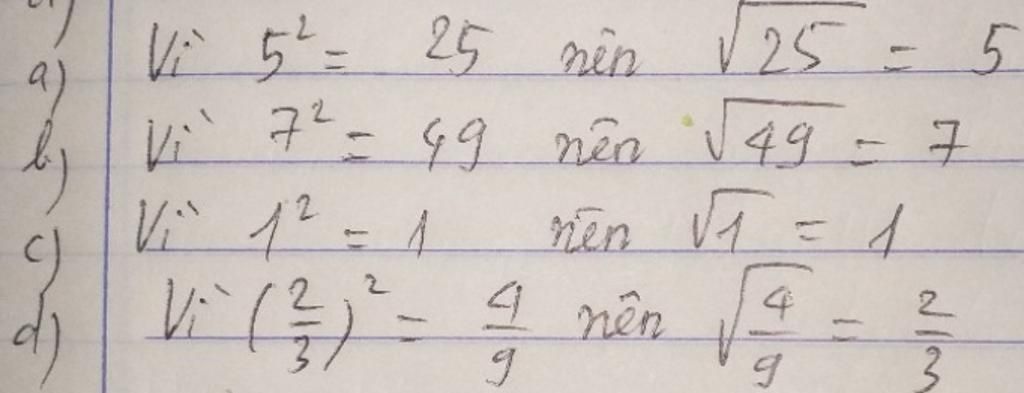 a) Vì 5² = 25 nên √25 = 5
b) Vì 7² = 49 nên √49 = 7
c) Vì 1² = 1 nên √1 = 1
d) Vì (2/3)² = 4/9 nên √(4/9) = 2/3